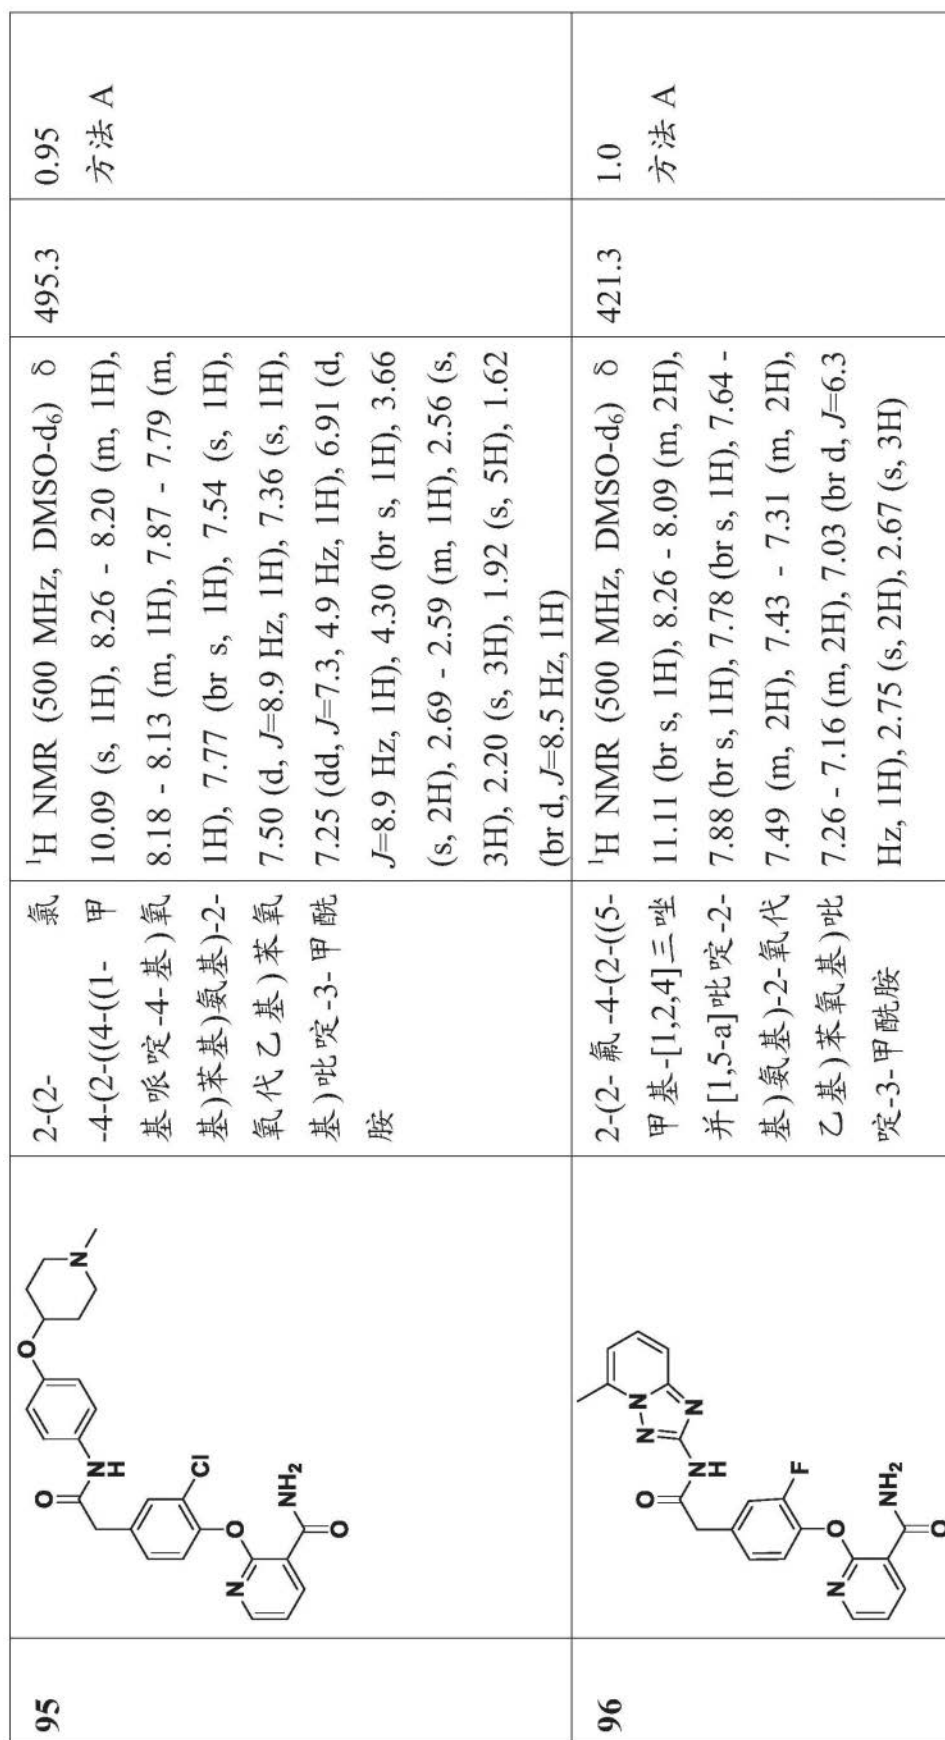 95
O
N
H
O
N
Cl
O
N
NH2
O
2-(2- 氯
-4-(2-((4-((1- 甲
基哌啶-4-基)氧
基)苯基)氨基)-2-
氧代乙基)苯氧
基)吡啶-3-甲酰
胺
¹H NMR (500 MHz, DMSO-d₆) δ
10.09 (s, 1H), 8.26 - 8.20 (m, 1H),
8.18 - 8.13 (m, 1H), 7.87 - 7.79 (m,
1H), 7.77 (br s, 1H), 7.54 (s, 1H),
7.50 (d, J=8.9 Hz, 1H), 7.36 (s, 1H),
7.25 (dd, J=7.3, 4.9 Hz, 1H), 6.91 (d,
J=8.9 Hz, 1H), 4.30 (br s, 1H), 3.66
(s, 2H), 2.69 - 2.59 (m, 1H), 2.56 (s,
3H), 2.20 (s, 3H), 1.92 (s, 5H), 1.62
(br d, J=8.5 Hz, 1H)
495.3
0.95
方法 A
96
O
N
H
N
N
N
F
O
N
NH2
O
2-(2- 氟 -4-(2-((5-
甲基-[1,2,4]三唑
并[1,5-a]吡啶-2-
基)氨基)-2-氧代
乙基)苯氧基)吡
啶-3-甲酰胺
¹H NMR (500 MHz, DMSO-d₆) δ
11.11 (br s, 1H), 8.26 - 8.09 (m, 2H),
7.88 (br s, 1H), 7.78 (br s, 1H), 7.64 -
7.49 (m, 2H), 7.43 - 7.31 (m, 2H),
7.26 - 7.16 (m, 2H), 7.03 (br d, J=6.3
Hz, 1H), 2.75 (s, 2H), 2.67 (s, 3H)
421.3
1.0
方法 A